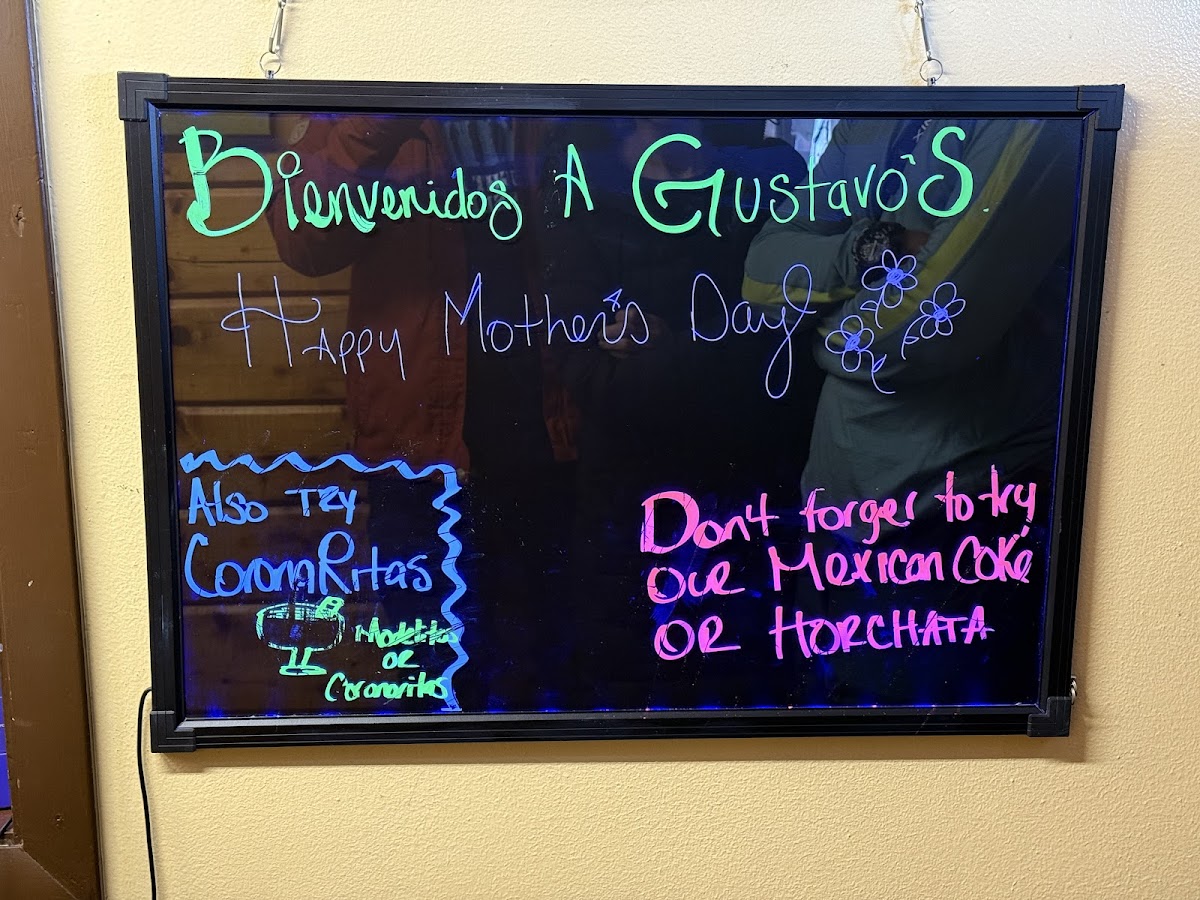 Bienvenidos A Gustavo's.
Happy Mother's Day!
Also Try
CoronaRitas
Modelitas
OR
Coronaritas
Don't forger to try
our Mexican Coke
OR HORCHATA